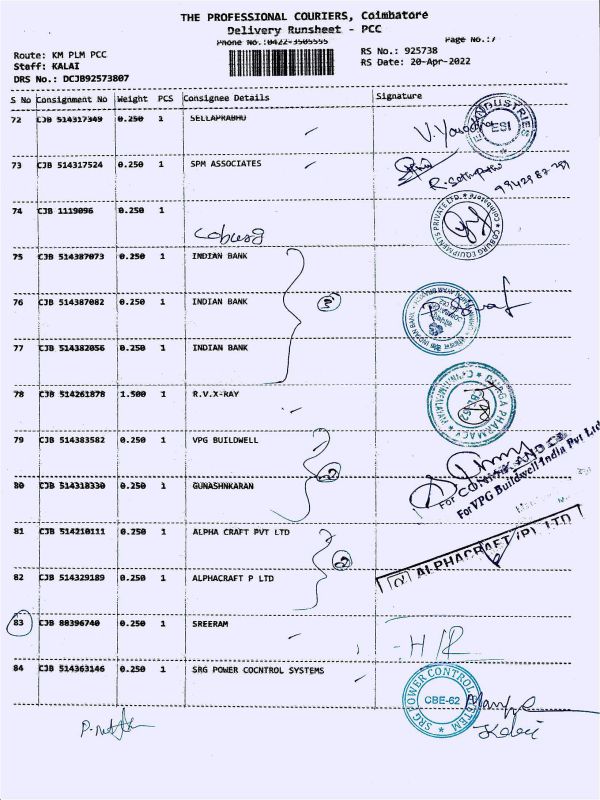 THE PROFESSIONAL COURIERS, Coimbatore
Delivery Runsheet - PCC
Phone No.:0422-3505555 Page No.:7
Route: KM PLM PCC RS No.: 925738
Staff: KALAI RS Date: 20-Apr-2022
DRS No.: DCJB92573807
S No Consignment No Weight PCS Consignee Details Signature
72 CJB 514317349 0.250 1 SELLAPRABHU
INDUSTRIES
ESI
73 CJB 514317524 0.250 1 SPM ASSOCIATES
74 CJB 1119096 0.250 1
Coburg
COBURG EQUIPMENTS PRIVATE LTD. * COIMBATORE *
75 CJB 514387073 0.250 1 INDIAN BANK
76 CJB 514387082 0.250 1 INDIAN BANK
3
77 CJB 514382056 0.250 1 INDIAN BANK
78 CJB 514261878 1.500 1 R.V.X-RAY
PHARMACY
79 CJB 514383582 0.250 1 VPG BUILDWELL
2
For VPG Buildwell India Pvt Ltd
80 CJB 514318330 0.250 1 GUNASHNKARAN
81 CJB 514210111 0.250 1 ALPHA CRAFT PVT LTD
2
ALPHACRAFT (P) LTD
82 CJB 514329189 0.250 1 ALPHACRAFT P LTD
83 CJB 88396740 0.250 1 SREERAM
H/R
84 CJB 514363146 0.250 1 SRG POWER COCNTROL SYSTEMS
SRG POWER CONTROL SYSTEM
CBE-62